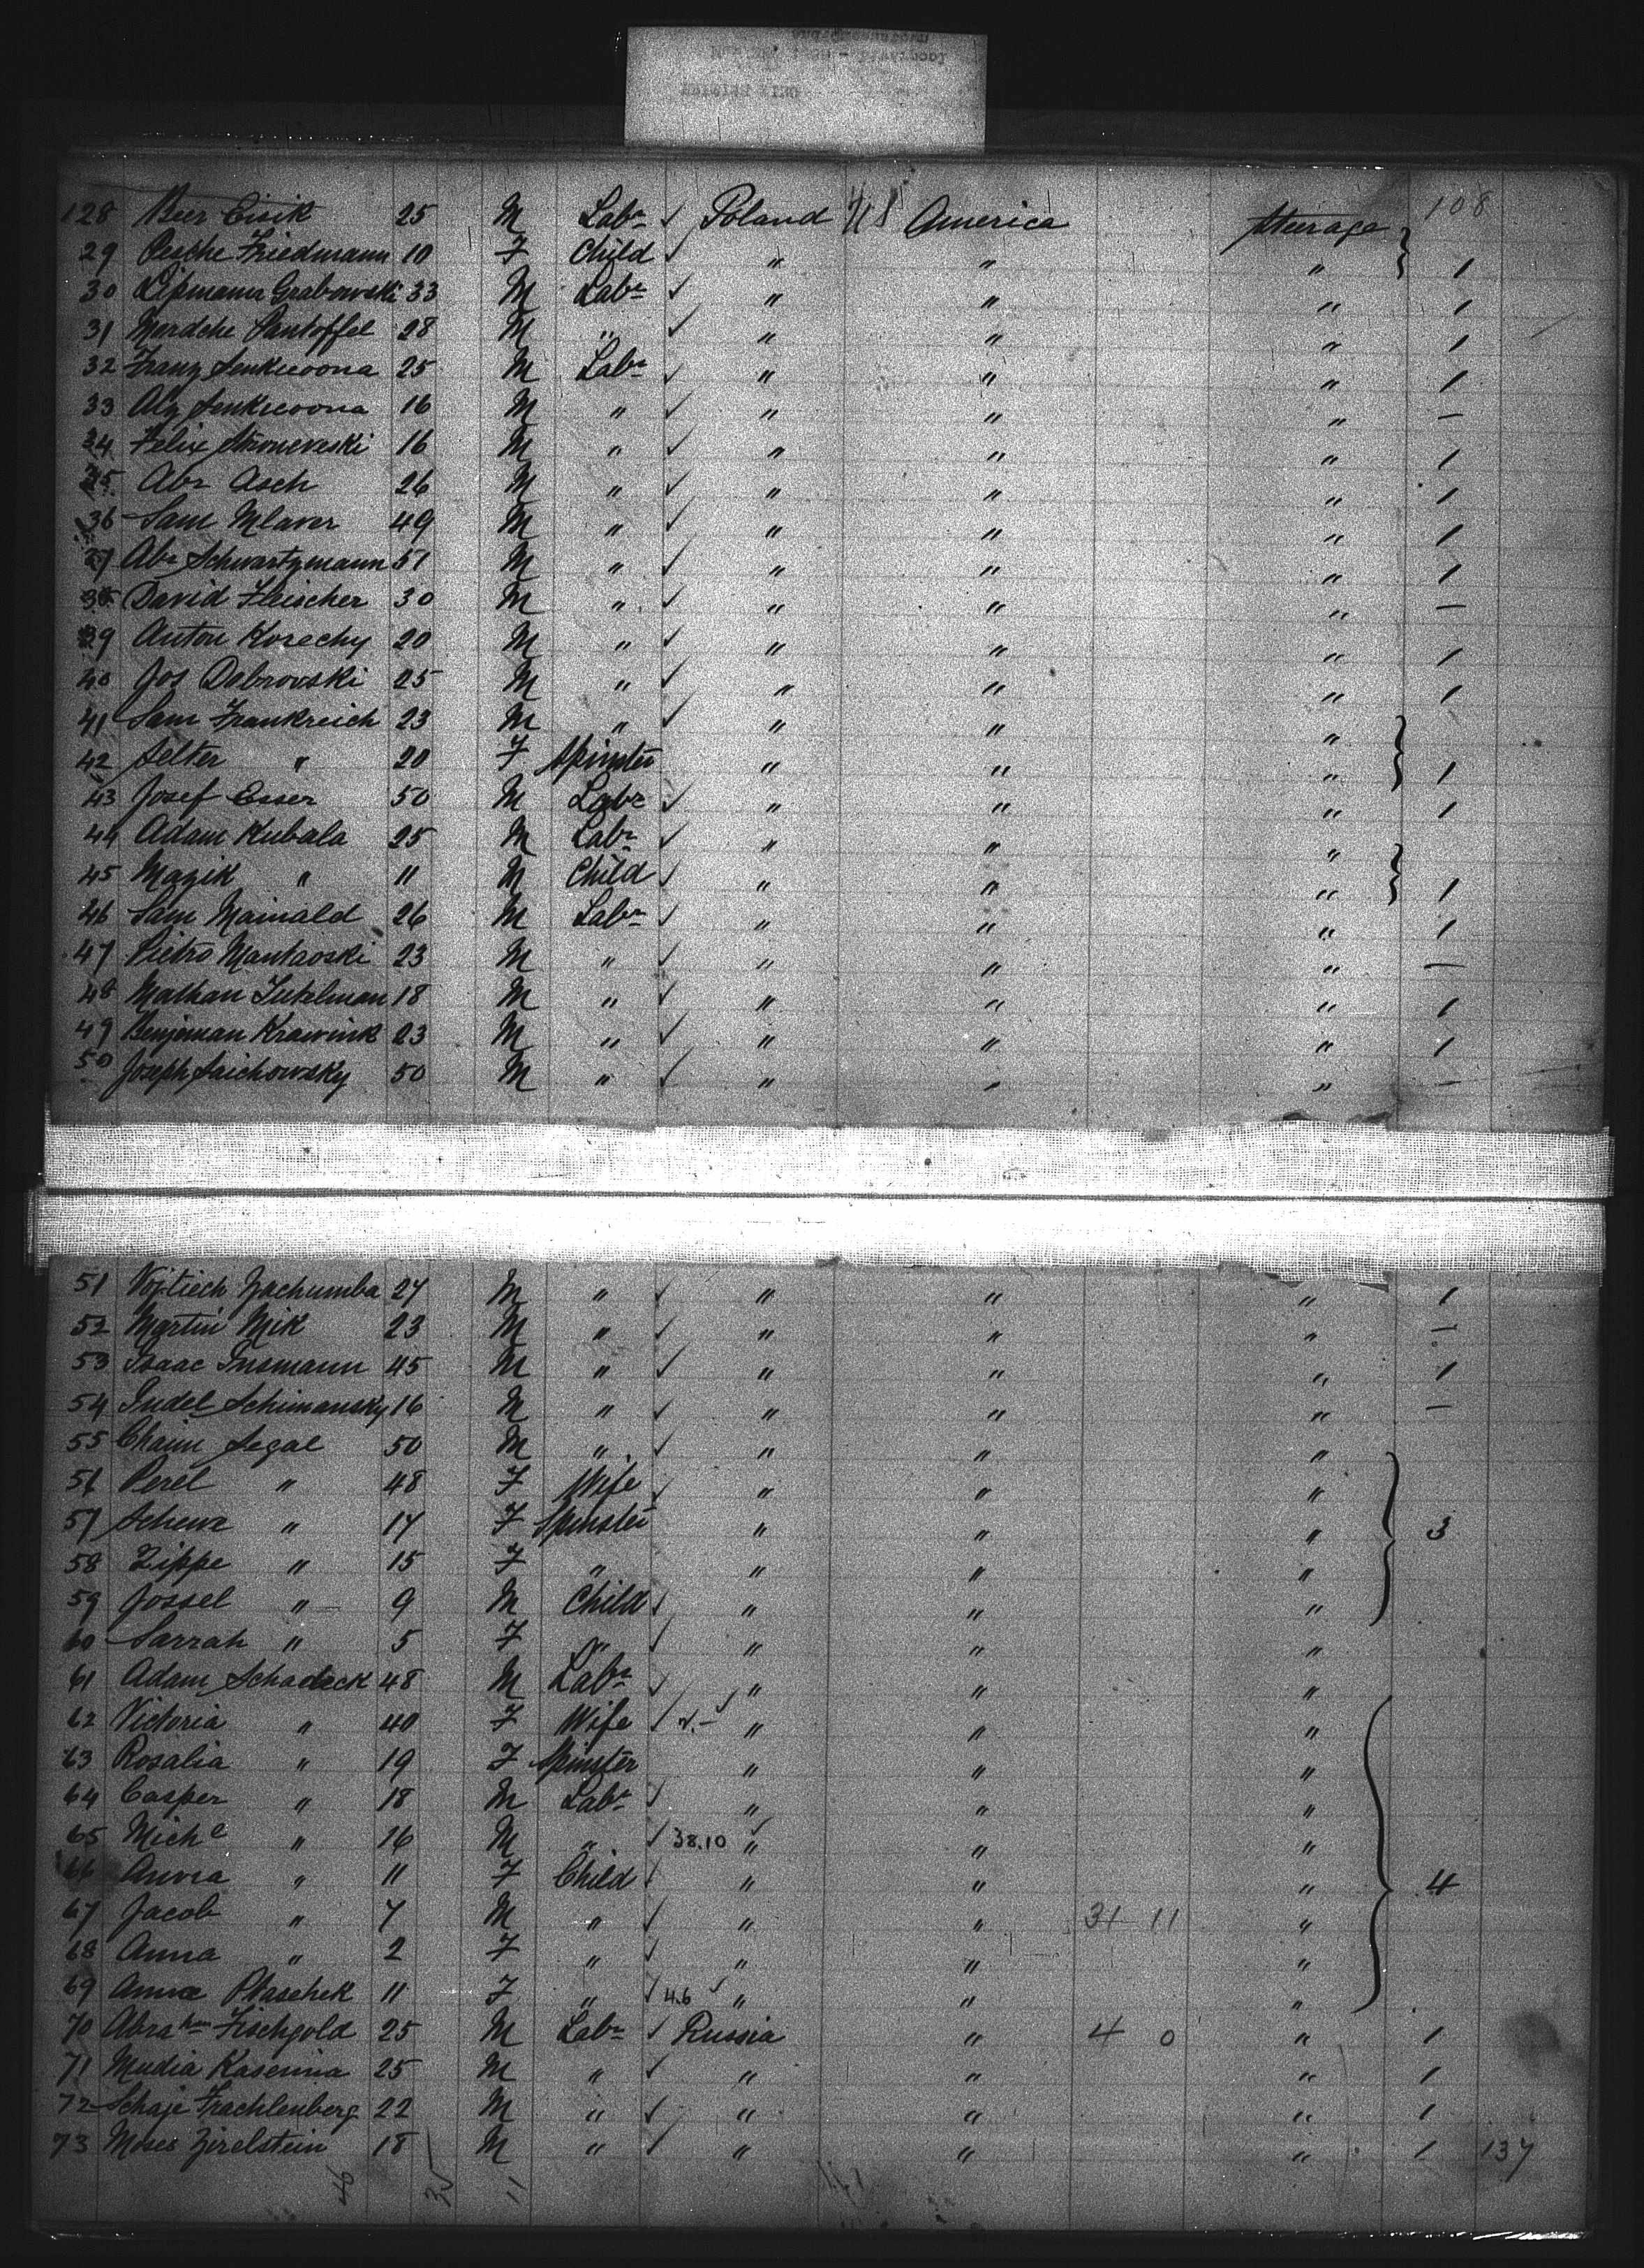 108
128 Beer Eisik 25 M Labr ✓ Poland U S America Steerage
29 Pesche Friedmann 10 F Child ✓ " " " 1
30 Lipmann Grabowski 33 M Labr ✓ " " " 1
31 Mordche Pantoffel 28 M " ✓ " " " 1
32 Franz 25 M Labr ✓ " " " 1
33 16 M " ✓ " " " —
34 Felix 16 M " ✓ " " " 1
35 Abr Asch 26 M " ✓ " " " 1
36 Sam Mlaver 49 M " ✓ " " " 1
37 Abr Schwartzmann 51 M " ✓ " " " 1
38 David Fleischer 30 M " ✓ " " " —
39 Anton Korechy 20 M " ✓ " " " 1
40 Jos Debrovski 25 M " ✓ " " " 1
41 Sam Frankreich 23 M " ✓ " " "
42 Selter " 20 F Spinster " " " 1
43 Josef Esser 50 M Labr ✓ " " " 1
44 Adam Kubala 25 M Labr ✓ " " "
45 Mazik " 11 M Child ✓ " " " 1
46 Sam Mainald 26 M Labr ✓ " " " 1
47 Pietro Mantaoski 23 M " ✓ " " " —
48 18 M " ✓ " " " 1
49 Benjeman Krawink 23 M " ✓ " " " 1
50 Joseph Saichowsky 50 M " ✓ " " " —
51 Vojtiech Zachumba 27 M " ✓ " " " 1
52 Martin Mik 23 M " ✓ " " " —
53 Isaac Insmann 45 M " ✓ " " " 1
54 Judel Schimansky 16 M " ✓ " " " —
55 Chaim Segal 50 M " ✓ " " "
56 Perel " 48 F Wife ✓ " " "
57 " 17 F Spinster " " " 3
58 Zippe " 15 F " " " "
59 Jossel " 9 M Child ✓ " " "
60 Sarrah " 5 F " ✓ " " "
61 Adam Schadeck 48 M Labr ✓ " " "
62 Victoria " 40 F Wife ✓ " " "
63 Rosalia " 19 F Spinster " " "
64 Casper " 18 M Labr ✓ " " "
65 Michl " 16 M " ✓ 38.10 " " "
66 " 11 F Child ✓ " " " 4
67 Jacob " 7 M " ✓ " " 31 11 "
68 Anna " 2 F " ✓ " " "
69 Anna Ptaschek 11 F " ✓ 4.6 ✓ " " "
70 Abraham Fischgold 25 M Labr ✓ Russia " 4 0 " 1
71 Mudia Kasenna 25 M " ✓ " " " 1
72 Schaje Frachlenberg 22 M " ✓ " " " 1
73 Moses Zirelstein 18 M " ✓ " " " 1 137
46 11